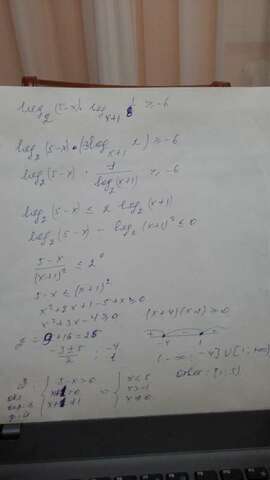 log₂(5-x) · log_{x+1} 1/8 ≥ -6
log₂(5-x) · (3log_{x+1} 2) ≥ -6
log₂(5-x) · 1/log₂(x+1) ≥ -6
log₂(5-x) ≤ 2 log₂(x+1)
log₂(5-x) - log₂(x+1)² ≤ 0
(5-x)/(x+1)² ≤ 2⁰
5-x ≤ (x+1)²
x²+2x+1-5+x ≥ 0
x²+3x-4 ≥ 0 (x+4)(x-1) ≥ 0
D = 9+16 = 25
(-3±5)/2 ; -4 1 -4 1
(-∞; -4] ∪ [1; +∞)
{ 5-x>0 { x<5
{ x+1>0 ⇔ { x>-1
{ x+1≠1 { x≠0